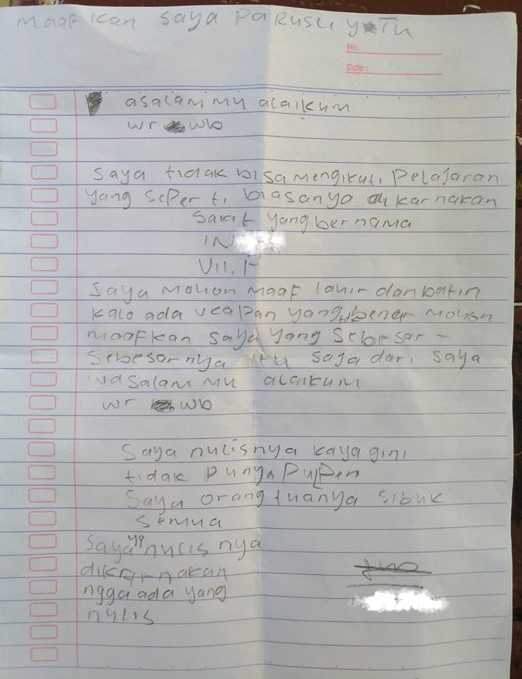 maafkan saya PaRusu yTu
No.
Date:
asalam mu alaikum
wr wb
saya tidak bisa mengikuti Pelajaran
yang sePerti biasanya di karnakan
sakit yang bernama
IN
VII.
saya mohon maaf lahir dan batin
kalo ada ucaPan yang bener mohon
maafkan saya yang sebesar-
sebesarnya itu saja dari saya
wasalam mu alaikum
wr wb
saya nulisnya kaya gini
tidak Punya PulPen
saya orang tuanya sibuk
semua
saya yg nulis nya
dikarnakan
ngga ada yang
nulis